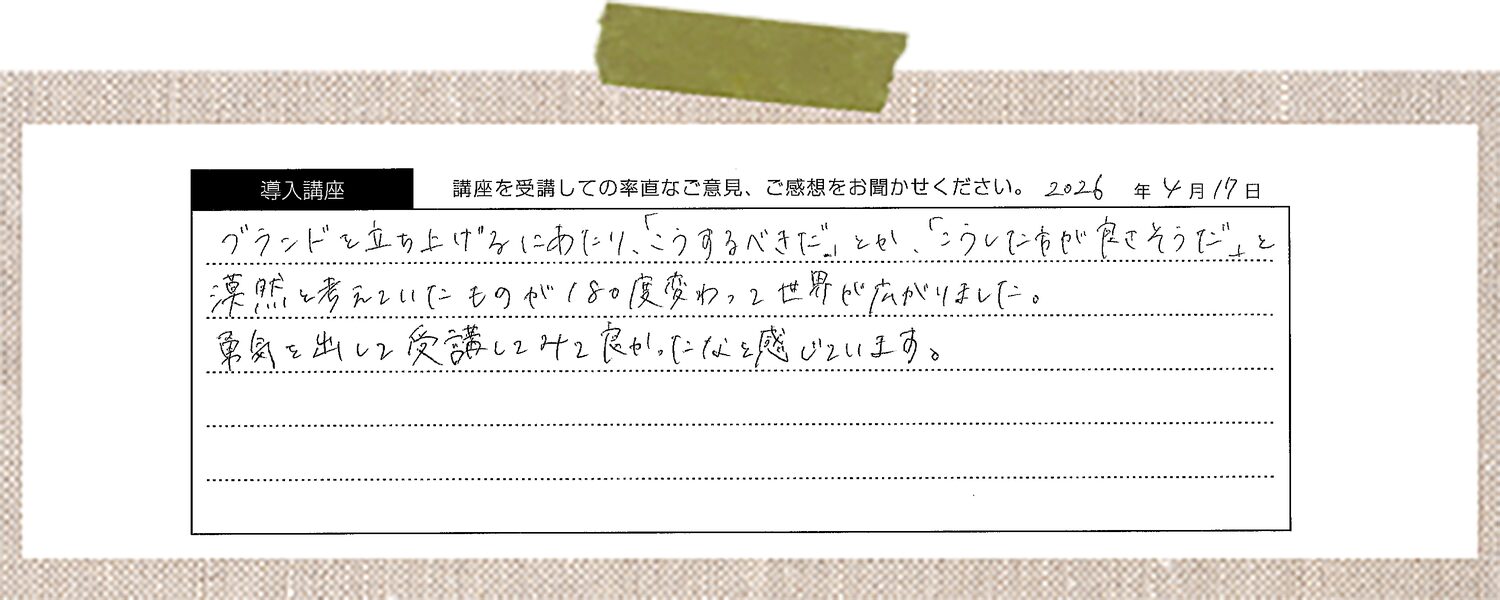 導入講座 講座を受講しての率直なご意見、ご感想をお聞かせください。 2026年4月17日
ブランドを立ち上げるにあたり、「こうするべきだ。」とか、「こうした方が良さそうだ」と
漠然と考えていたものが180度変わって世界が広がりました。
勇気を出して受講してみて良かったなと感じています。